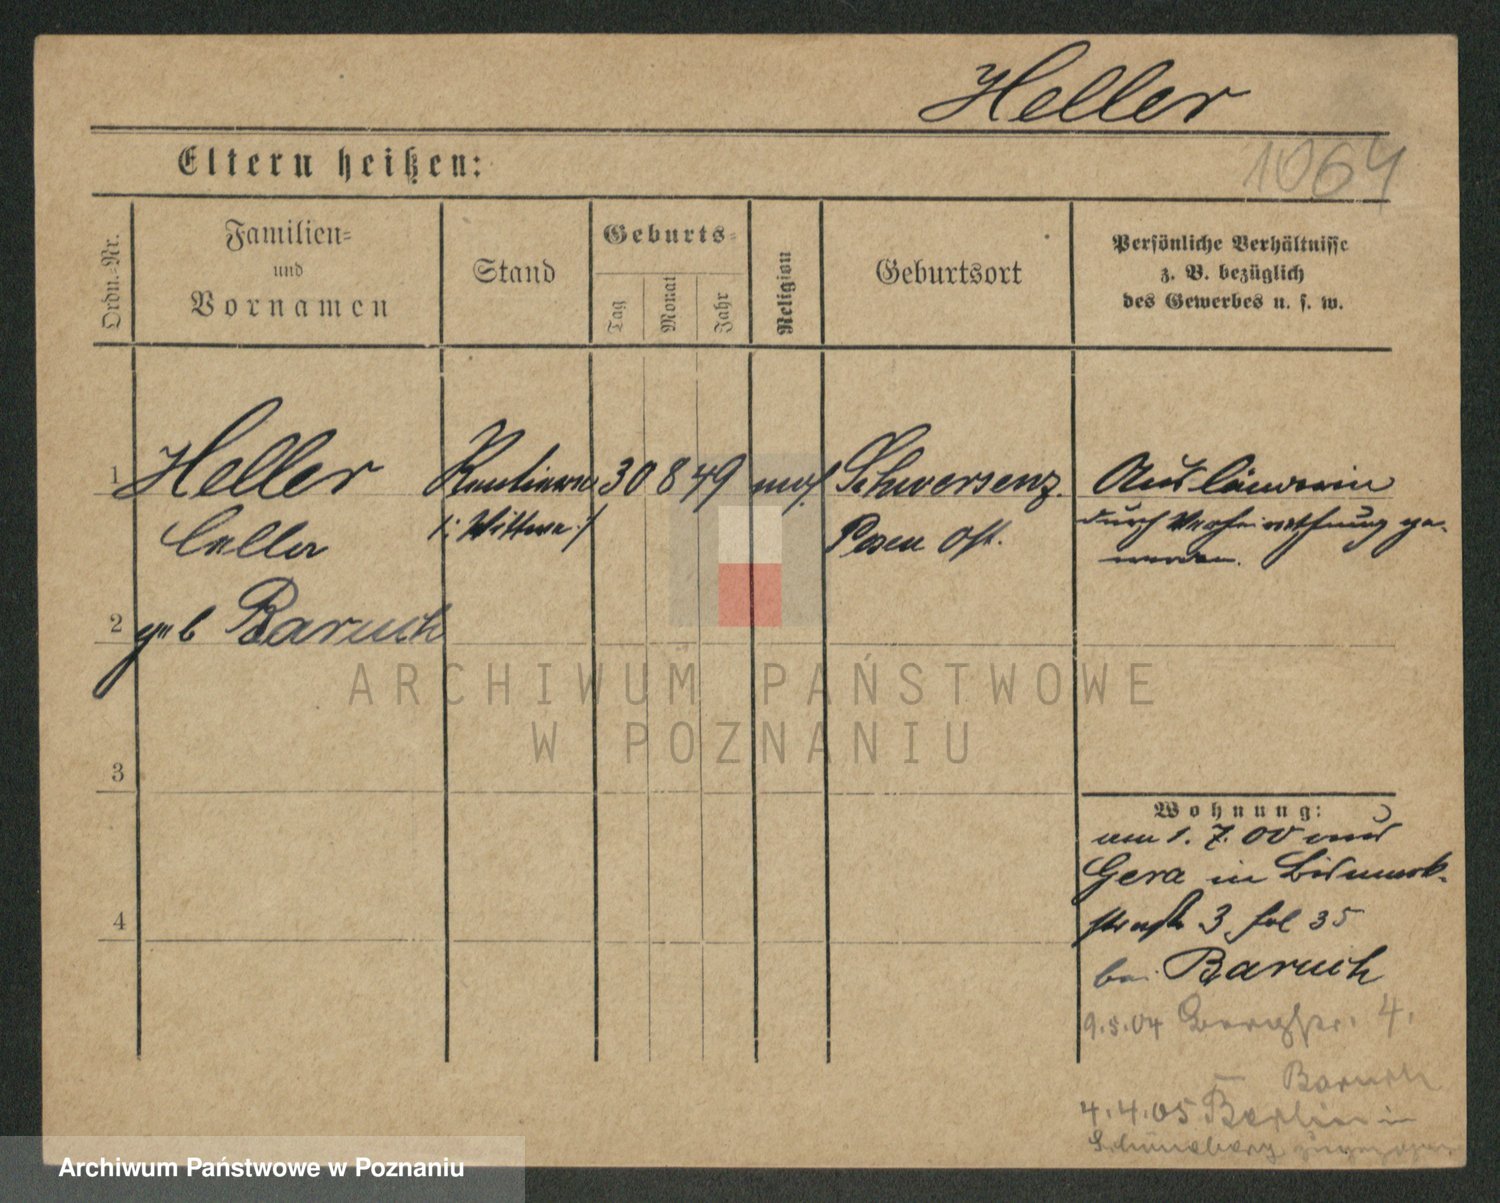 Heller
1064
Eltern heißen:
Ordn.-Nr.
Familien-
und
Vornamen
Stand
Geburts-
Tag
Monat
Jahr
Religion
Geburtsort
Persönliche Verhältnisse
z. B. bezüglich
des Gewerbes u. s. w.
1 Heller Rentiere 30 8 49 mos. Schwersenz Ausländerin
/: Wittwe :/ Posen Ost. durch Verheirathung ge-
worden.
2 geb Baruch
3
4
ARCHIWUM PAŃSTWOWE
W POZNANIU
Wohnung:
am 1. 7. 00 aus
Gera in Bismark-
straße 3 fol 35
bei Baruch
9.5.04 Bergstr. 4.
Baruch
4.4.05 Berlin in
Schöneberg
Archiwum Państwowe w Poznaniu